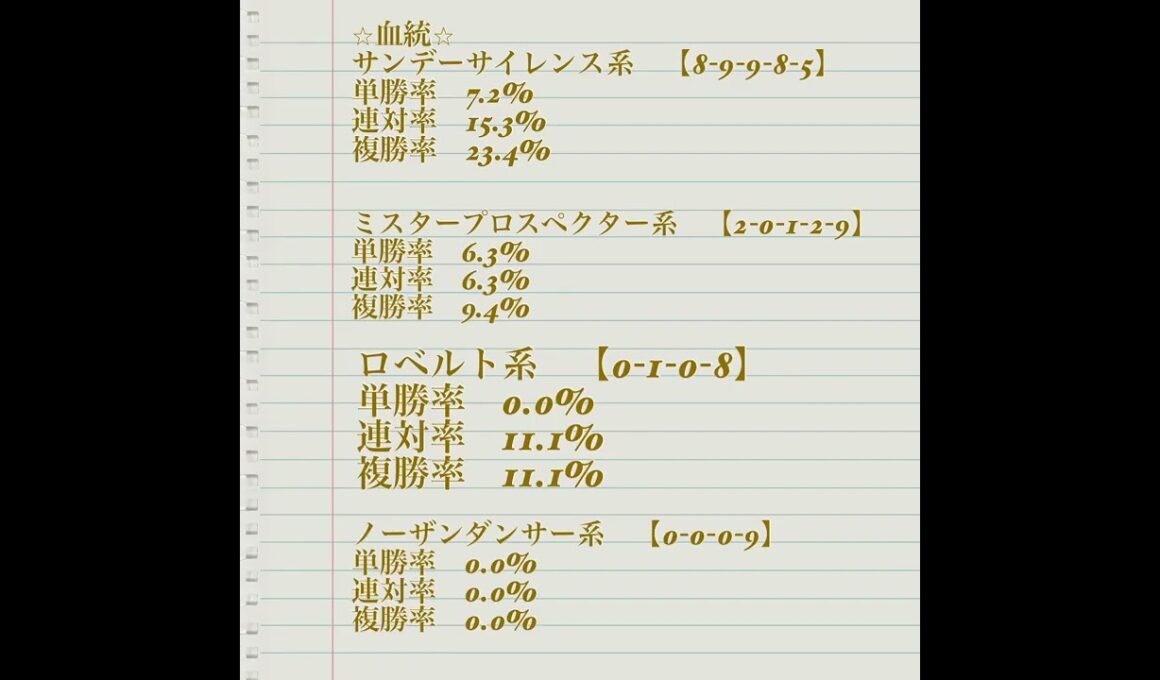 ☆血統☆
サンデーサイレンス系　【8-9-9-8-5】
単勝率　7.2%
連対率　15.3%
複勝率　23.4%
ミスタープロスペクター系　【2-0-1-2-9】
単勝率　6.3%
連対率　6.3%
複勝率　9.4%
ロベルト系　【0-1-0-8】
単勝率　0.0%
連対率　11.1%
複勝率　11.1%
ノーザンダンサー系　【0-0-0-9】
単勝率　0.0%
連対率　0.0%
複勝率　0.0%